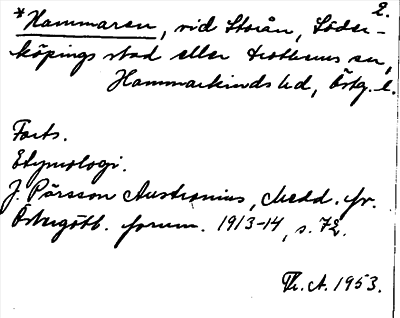 2.
*Hammaren, vid Storån, Söder-
köpings stad eller Drothems sn,
Hammarkinds hd, Östg. l.
Forts.
Etymologi.
J. Pärsson Austronius, Medd. fr.
Östergötl. fornm. 1913-14, s. 72.
Th. A. 1953.